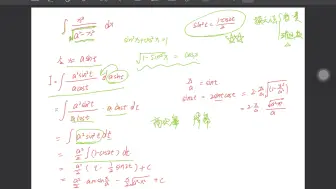 ∫ x²/√(a²-x²) dx
sin²t = (1-cos2t)/2
sin²t+cos²t=1
√(1-sin²t) = cost
令 x=asint
I = ∫ a²sin²t/acost dasint
x/a = sint
= ∫ a²sin²t/acost · acost dt
sin2t = 2sintcost = 2·x/a·√(1-x²/a²)
= 2·x/a·√(a²-x²)/a
= ∫ a²sin²t dt
降幂
= a²/2 ∫ (1-cos2t) dt
= a²/2 (t - 1/2 sin2t) + C
= a²/2 arcsin x/a - x/2 √(a²-x²) + C